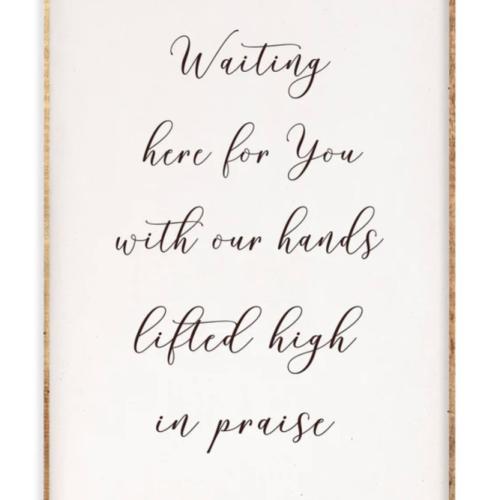 Waiting
here for You
with our hands
lifted high
in praise